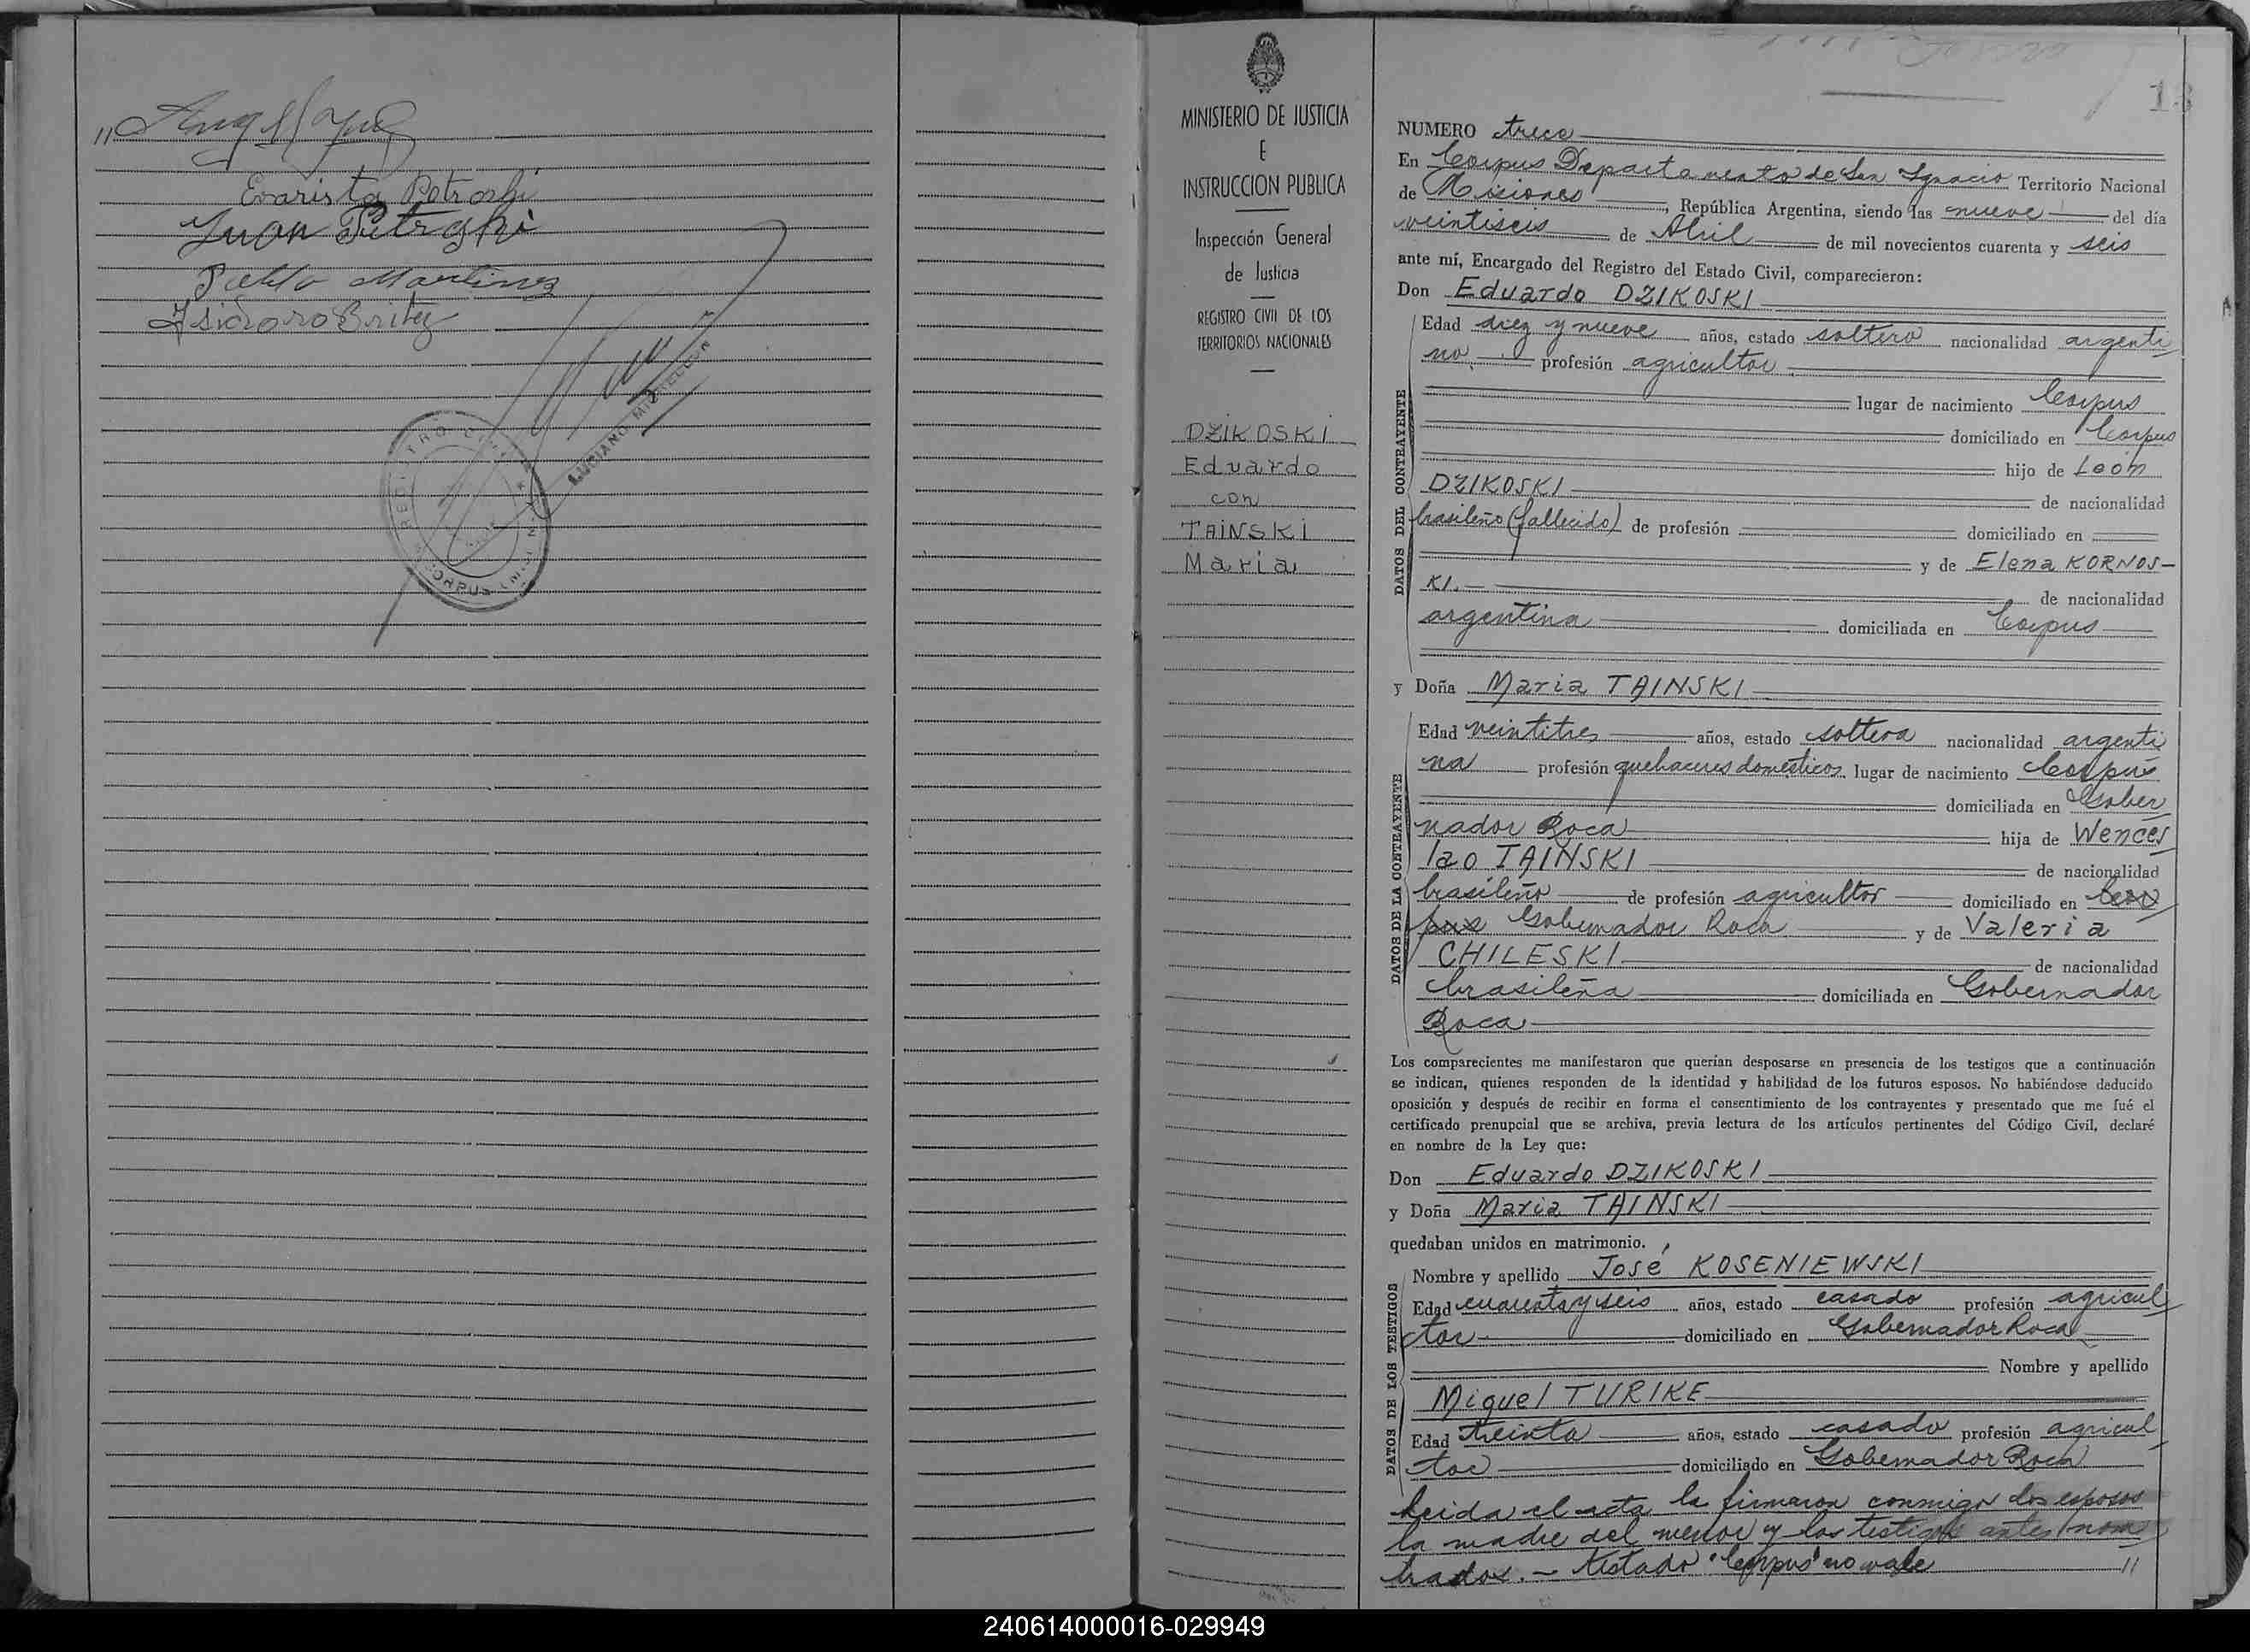 Evarista Petroski
Juan Petroski
Pablo Martinez
Isidoro Britez
LUCIANO
REGISTRO CIVIL
CORPUS
MINISTERIO DE JUSTICIA
E
INSTRUCCION PUBLICA
Inspección General
de Justicia
REGISTRO CIVIL DE LOS
TERRITORIOS NACIONALES
DZIKOSKI
Eduardo
con
TAINSKI
Maria
13
NUMERO trece
En Corpus Departamento de San Ignacio Territorio Nacional
de Misiones, República Argentina, siendo las nueve del día
veintiseis de Abril de mil novecientos cuarenta y seis
ante mí, Encargado del Registro del Estado Civil, comparecieron:
Don Eduardo DZIKOSKI
DATOS DEL CONTRAYENTE
Edad diez y nueve años, estado soltero nacionalidad argenti
no profesión agricultor
lugar de nacimiento Corpus
domiciliado en Corpus
hijo de León
DZIKOSKI de nacionalidad
brasileño (fallecido) de profesión domiciliado en
y de Elena KORNOS-
KI.- de nacionalidad
argentina domiciliada en Corpus
y Doña Maria TAINSKI
DATOS DE LA CONTRAYENTE
Edad veintitres años, estado soltera nacionalidad argenti
na profesión quehaceres domésticos lugar de nacimiento Corpus
domiciliada en Gober
nador Roca hija de Wences
lao TAINSKI de nacionalidad
brasileño de profesión agricultor domiciliado en Cor
pus Gobernador Roca y de Valeria
CHILESKI de nacionalidad
brasileña domiciliada en Gobernador
Roca
Los comparecientes me manifestaron que querían desposarse en presencia de los testigos que a continuación
se indican, quienes responden de la identidad y habilidad de los futuros esposos. No habiéndose deducido
oposición y después de recibir en forma el consentimiento de los contrayentes y presentado que me fué el
certificado prenupcial que se archiva, previa lectura de los artículos pertinentes del Código Civil, declaré
en nombre de la Ley que:
Don Eduardo DZIKOSKI
y Doña Maria TAINSKI
quedaban unidos en matrimonio.
DATOS DE LOS TESTIGOS
Nombre y apellido José KOSENIEWSKI
Edad cuarenta y seis años, estado casado profesión agricul
tor domiciliado en Gobernador Roca
Nombre y apellido
Miguel TURIKE
Edad treinta años, estado casado profesión agricul
tor domiciliado en Gobernador Roca
Leida el acta la firmaron conmigo los esposos
la madre del menor y los testigos antes nom
brados.- Testado "Corpus" no vale //
240614000016-029949